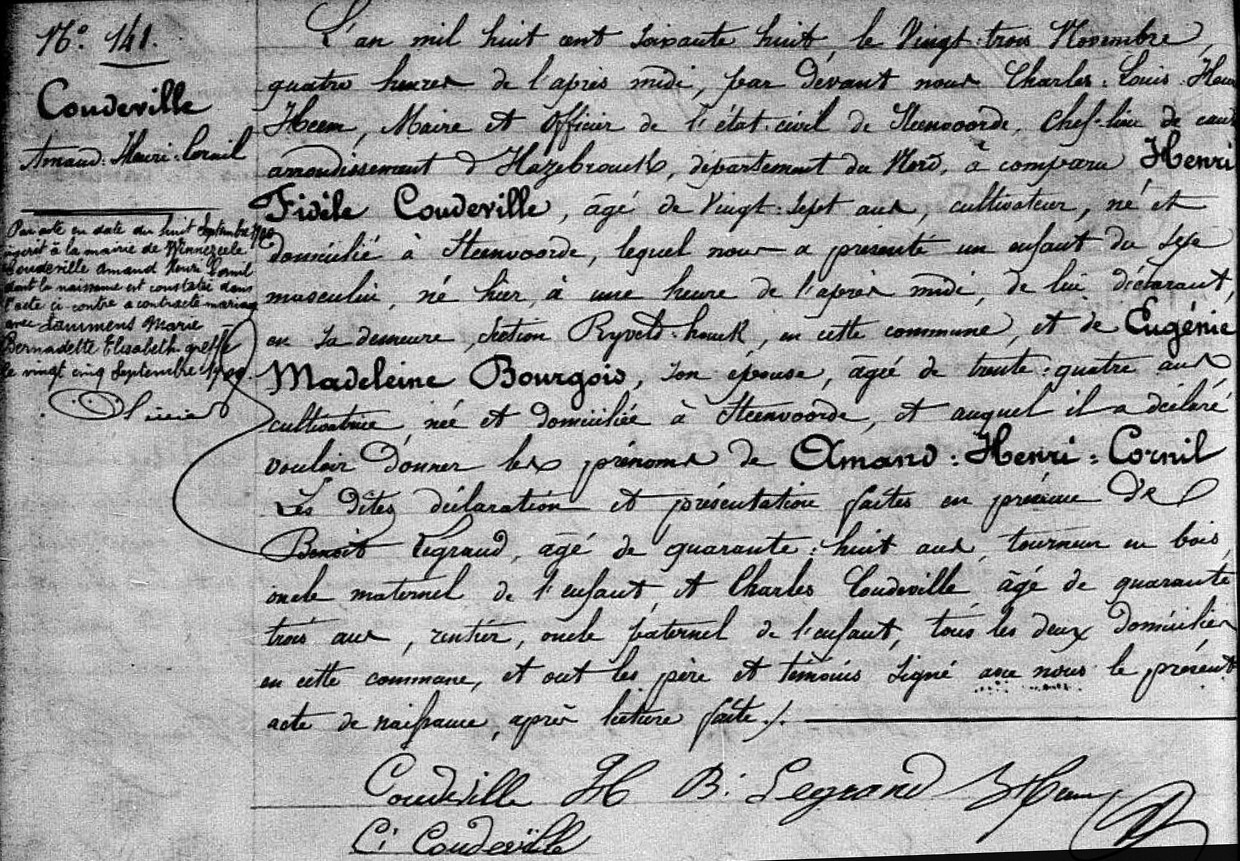 N° 141.
Coudeville
Amand=Henri=Cornil
Par acte en date du huit Septembre 1900
inscrit à la mairie de Winnezeele
Coudeville Amand Henri Cornil
dont la naissance est constatée dans
l'acte ci contre a contracté mariage
avec Lammens Marie
Bernadette Elisabeth. greffe
le vingt cinq Septembre 1900
L'an mil huit cent soixante huit, le Vingt-trois Novembre,
quatre heures de l'après midi, par devant nous Charles-Louis
Heem, Maire et Officier de l'état-civil de Steenvoorde, chef-lieu de canton
arrondissement d'Hazebrouck, département du Nord, a comparu Henri
Fidèle Coudeville, âgé de Vingt-sept ans, cultivateur, né et
domicilié à Steenvoorde, lequel nous a présenté un enfant du sexe
masculin, né hier, à une heure de l'après midi, de lui déclarant,
en sa demeure, section Ryveld-houck, en cette commune, et de Eugénie
Madeleine Bourgois, son épouse, âgée de trente=quatre ans
cultivatrice, née et domiciliée à Steenvoorde, et auquel il a déclaré
vouloir donner les prénoms de Amand=Henri=Cornil
Les dites déclaration et présentation faites en présence de
Benoît Legrand, âgé de quarante=huit ans, tourneur en bois,
oncle maternel de l'enfant et Charles Coudeville âgé de quarante
trois ans, rentier, oncle paternel de l'enfant, tous les deux domiciliés
en cette commune, et ont les père et témoins signé avec nous le présent
acte de naissance, après lecture faite./.
Coudeville H B. Legrand Heem
C. Coudeville